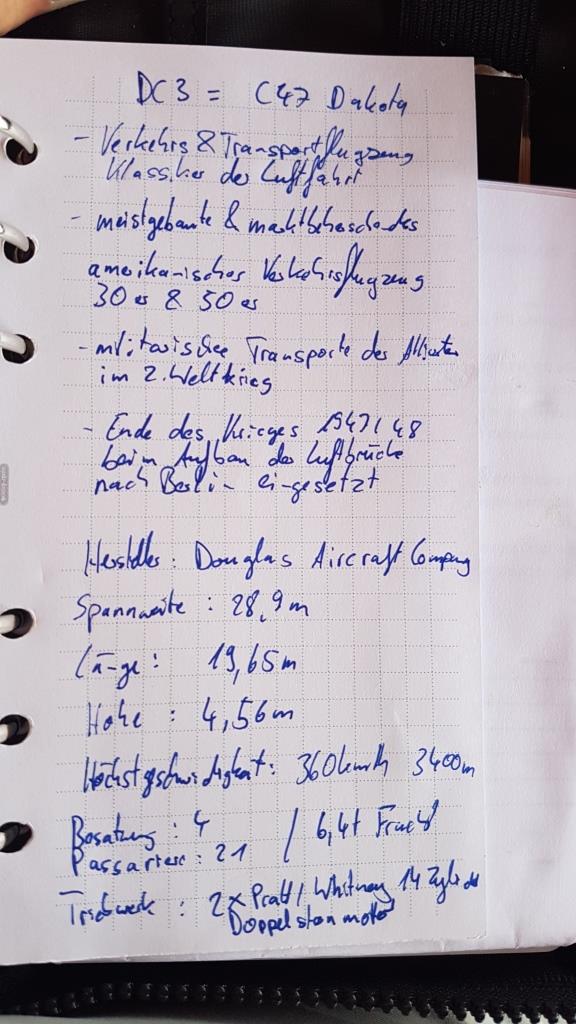 DC3 = C47 Dakota
- Verkehrs & Transportflugzeug
Klassiker der Luftfahrt
- meistgebaute & marktbeherschendes
amerikanisches Verkehrsflugzeug
30 er & 50 er
- militärischer Transporte der Alliierten
im 2. Weltkrieg
- Ende des Krieges 1947/48
beim Aufbau der Luftbrücke
nach Berlin eingesetzt
Hersteller: Douglas Aircraft Company
Spannweite : 28,9m
Länge : 19,65m
Höhe : 4,56m
Höchstgeschwindigkeit: 360km/h 3400m
Besatzung : 4 / 6,4t Fracht
Passagiere : 21
Triebwerk : 2x Pratt / Whitney 14 Zylinder
Doppelsternmotor